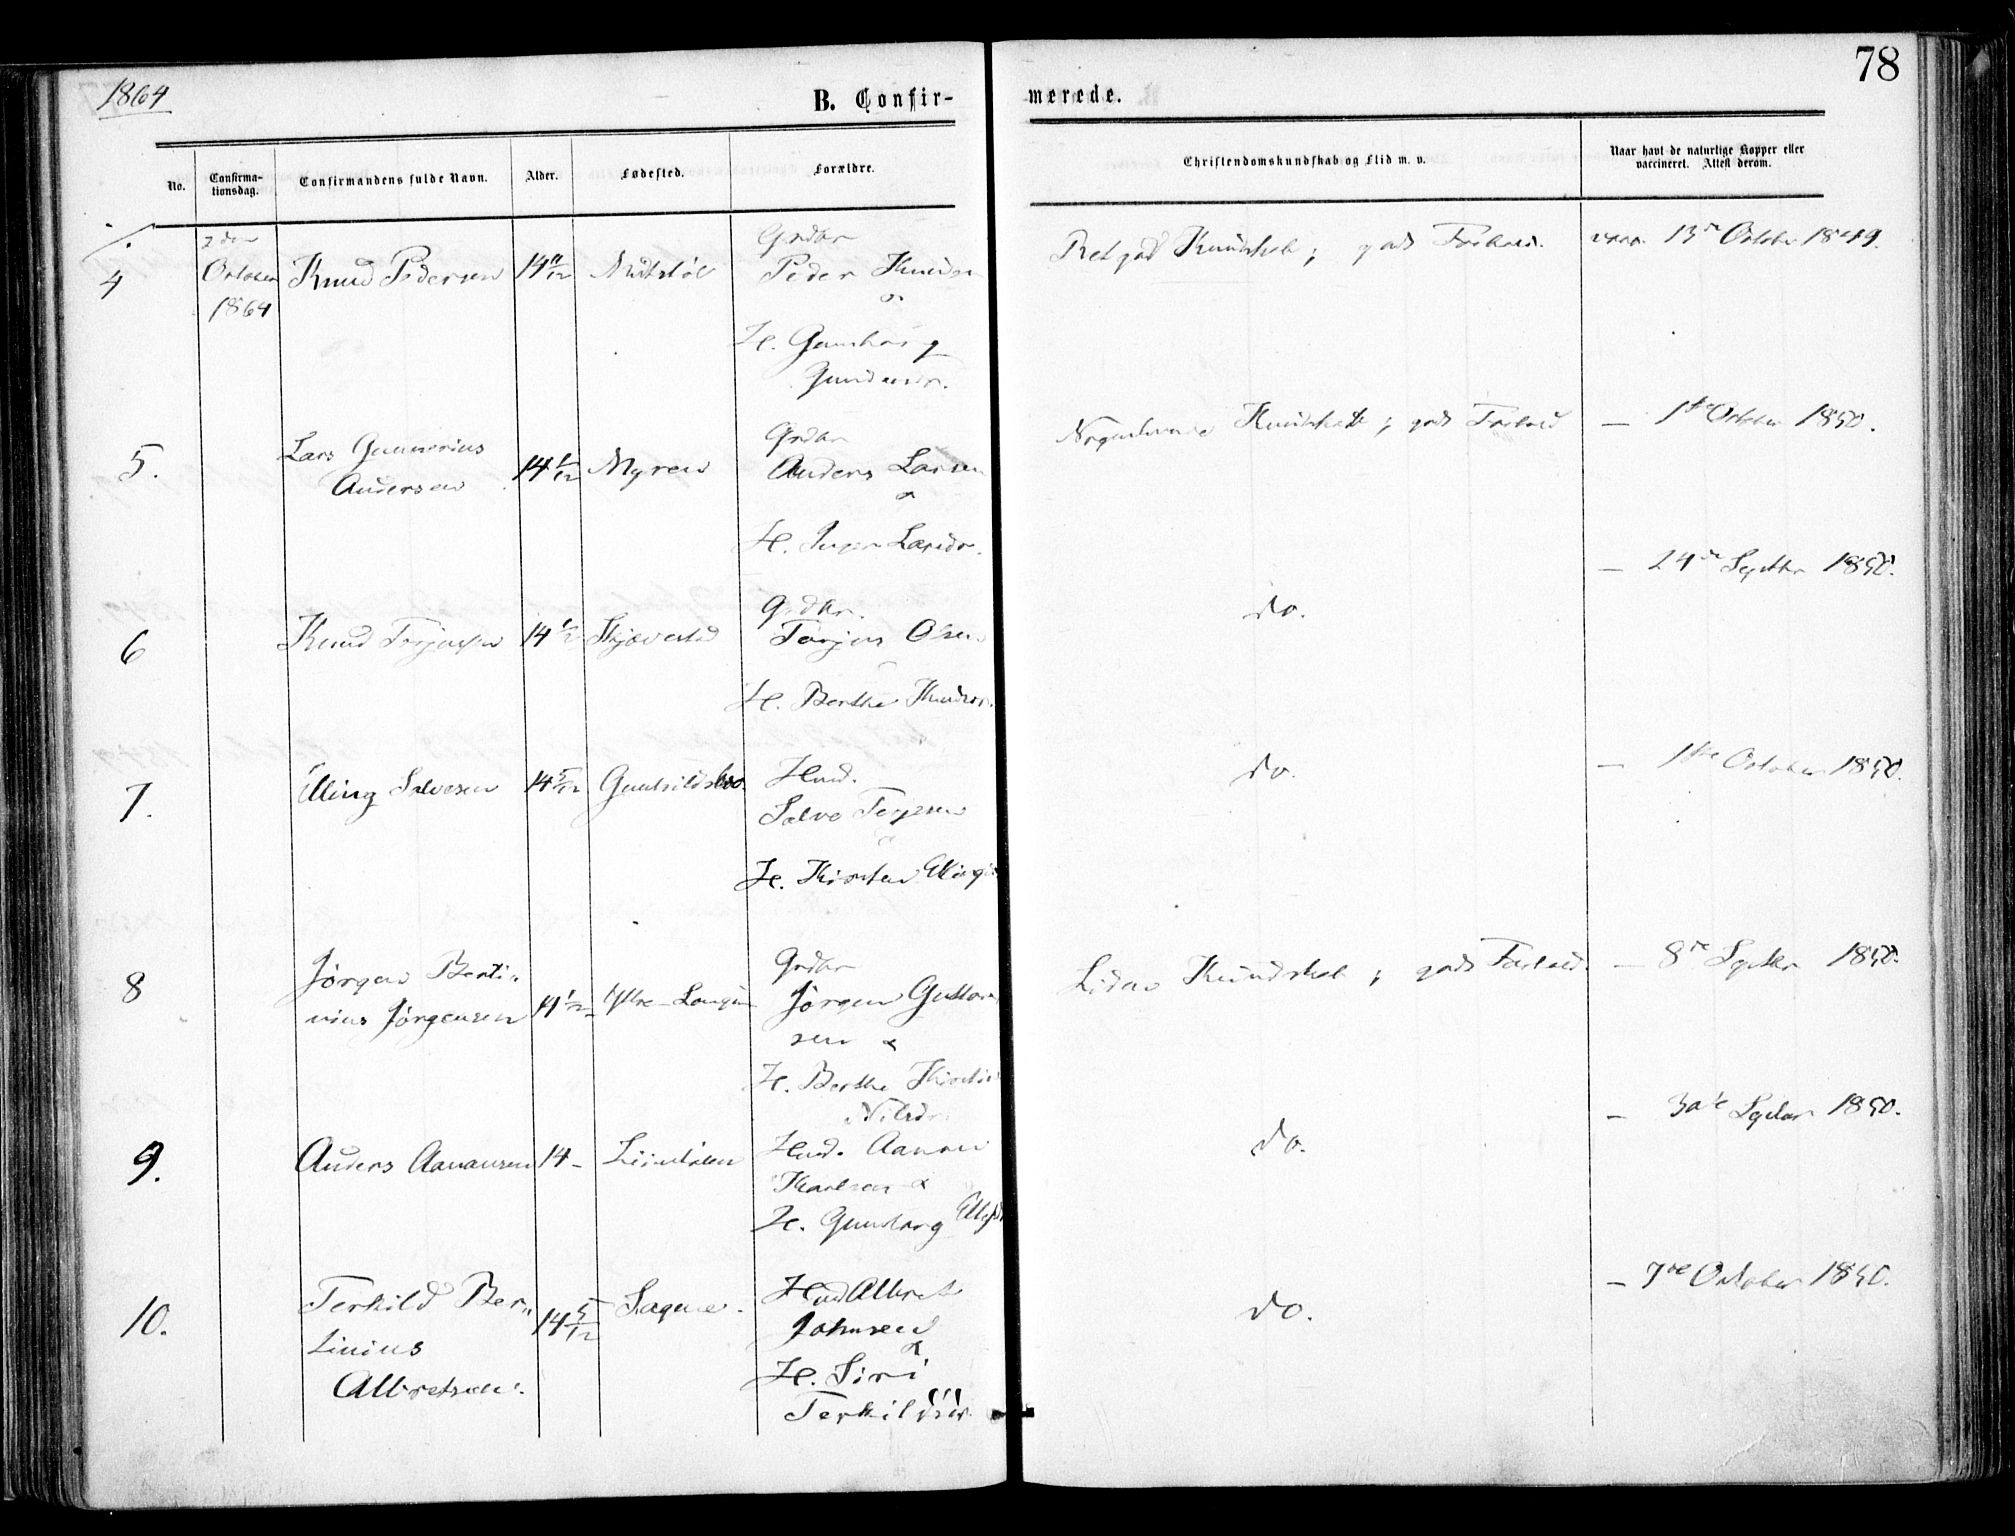 78
1864
B. Confir-
merede.
No.
Confirma-
tionsdag.
Confirmandens fulde Navn.
Alder.
Fødested.
Forældre.
Christendomskundskab og Flid m. v.
Naar havt de naturlige Kopper eller
vaccineret. Attest derom.
4
2den
October
1864
Knud Pedersen
14 11/12
Grdbr
Peder Knudsen
&
H. Gunborg
Gundersdr.
Ret god Kundskab; god Forhold.
vacc. 13de October 1849.
5.
Lars Gunnerius
Andersen
Myren
Grdbr
Anders Larsen
&
H. Inger Larsdr.
Kundskab; god Forhold
— 1ste October 1850.
6
Knud Terjesen
Grdbr.
Terjus Olsen
H. Berthe Knudsdr.
do.
— 24de Septbr 1850.
7.
Elling Salvesen
14 5/12
Hmd.
Salve Terjesen
&
H. Kirsten Ellingsdr
do.
— 1ste October 1850.
8
Jørgen Berti-
nius Jørgensen
Ytre-
Grdbr
Jørgen Gustav
sen &
H. Berthe Kirstine
Nilsdr.
Liden Kundskab; god Forhold.
— 8de Septbr 1850.
9.
Anders Aanansen
14 -
Hmd. Aanon
&
H. Gunborg
do.
— 30te Septbr 1850.
10.
Terkild Ber-
tinius
Albretsen.
14 5/12
Sagene.
Hmd Albret
Johnsen
&
H. Siri
Terkildsdr.
do.
— 7de October 1850.